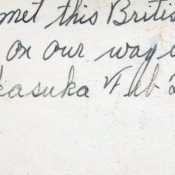 met this Britis
on our way
kasuka Feb 2